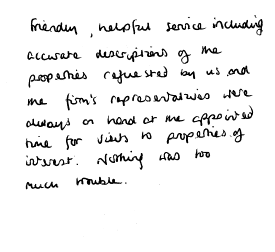 Friendly, helpful service including
accurate descriptions of the
properties requested by us and
the firm's representatives were
always on hand at the appointed
time for visits to properties of
interest. Nothing was too
much trouble.